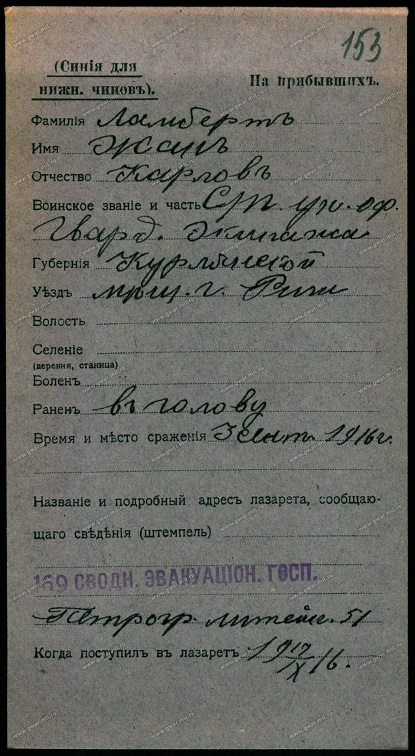 153
(Синія для
нижн. чиновъ).
На прибывшихъ.
Фамилія Ламбертъ
Имя Жанъ
Отчество Карловъ
Воинское званіе и часть Ст. ун. оф.
Гвард. Экипажа
Губернія Курлянской
Уѣздъ мѣщ. г. Риги
Волость
Селеніе
(деревня, станица)
Боленъ
Раненъ въ голову
Время и мѣсто сраженія 3 сент. 1916 г.
Названіе и подробный адресъ лазарета, сообщаю-
щаго свѣдѣнія (штемпель)
169 СВОДН. ЭВАКУАЦІОН. ГОСП.
Петрогр. Литейн. 51
Когда поступилъ въ лазаретъ 19 17/IX 16.